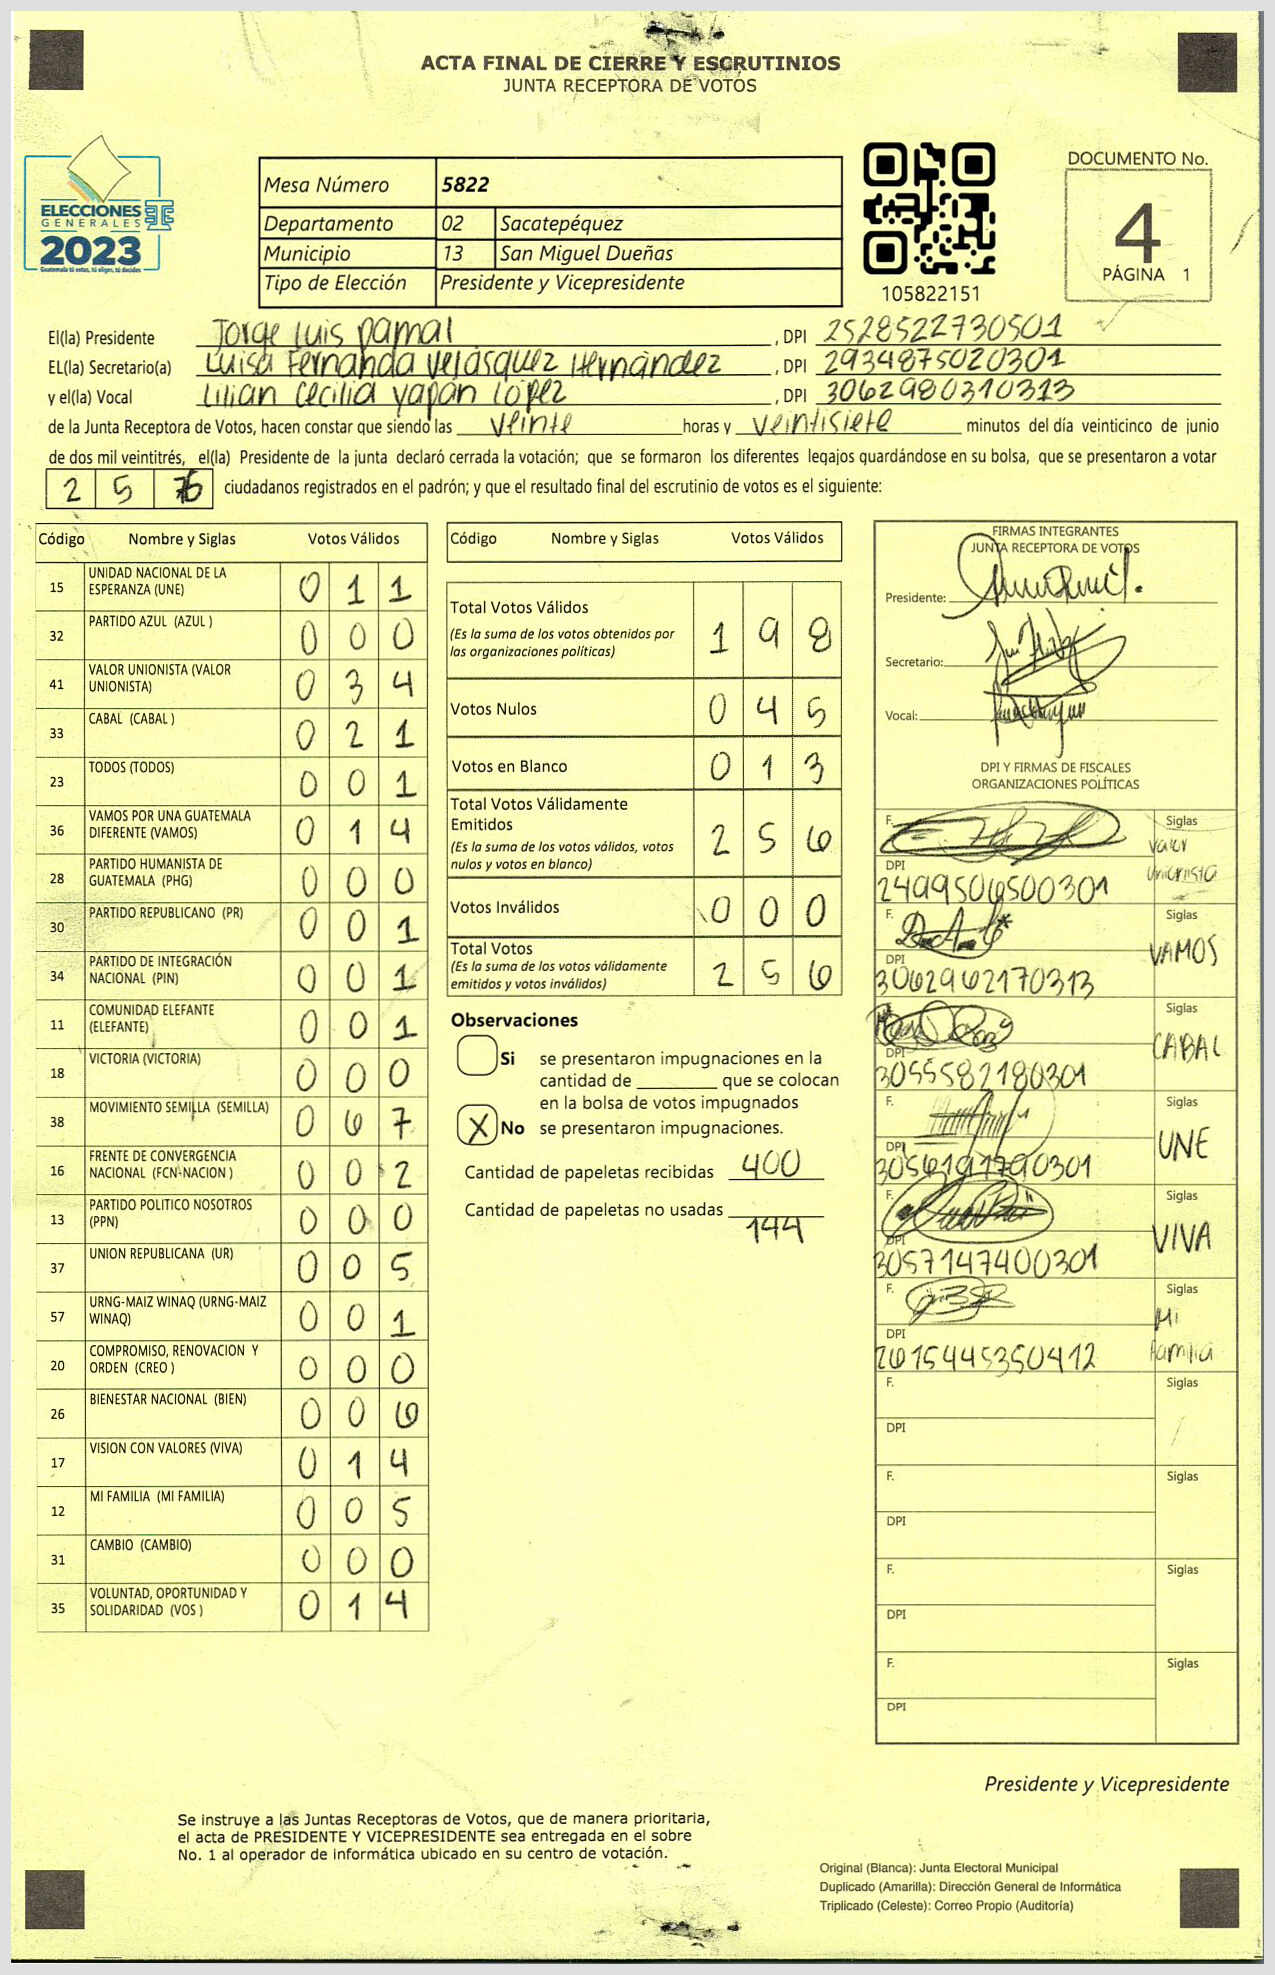 ACTA FINAL DE CIERRE Y ESCRUTINIOS
JUNTA RECEPTORA DE VOTOS
ELECCIONES
GENERALES
2023
Guatemala tú votas, tú eliges, tú decides
Mesa Número 5822
Departamento 02 Sacatepéquez
Municipio 13 San Miguel Dueñas
Tipo de Elección Presidente y Vicepresidente
105822151
DOCUMENTO No.
4
PÁGINA 1
El(la) Presidente Jorge Luis Pamal, DPI 2528522730501
EL(la) Secretario(a) Luisa Fernanda Velásquez Hernández, DPI 2934875020301
y el(la) Vocal Lilian Cecilia Yapán López, DPI 3062980310313
de la Junta Receptora de Votos, hacen constar que siendo las veinte horas y veintisiete minutos del día veinticinco de junio
de dos mil veintitrés, el(la) Presidente de la junta declaró cerrada la votación; que se formaron los diferentes legajos guardándose en su bolsa, que se presentaron a votar
2 5 6 ciudadanos registrados en el padrón; y que el resultado final del escrutinio de votos es el siguiente:
Código Nombre y Siglas Votos Válidos
15 UNIDAD NACIONAL DE LA ESPERANZA (UNE) 0 1 1
32 PARTIDO AZUL (AZUL ) 0 0 0
41 VALOR UNIONISTA (VALOR UNIONISTA) 0 3 4
33 CABAL (CABAL ) 0 2 1
23 TODOS (TODOS) 0 0 1
36 VAMOS POR UNA GUATEMALA DIFERENTE (VAMOS) 0 1 4
28 PARTIDO HUMANISTA DE GUATEMALA (PHG) 0 0 0
30 PARTIDO REPUBLICANO (PR) 0 0 1
34 PARTIDO DE INTEGRACIÓN NACIONAL (PIN) 0 0 1
11 COMUNIDAD ELEFANTE (ELEFANTE) 0 0 1
18 VICTORIA (VICTORIA) 0 0 0
38 MOVIMIENTO SEMILLA (SEMILLA) 0 6 7
16 FRENTE DE CONVERGENCIA NACIONAL (FCN-NACION ) 0 0 2
13 PARTIDO POLITICO NOSOTROS (PPN) 0 0 0
37 UNION REPUBLICANA (UR) 0 0 5
57 URNG-MAIZ WINAQ (URNG-MAIZ WINAQ) 0 0 1
20 COMPROMISO, RENOVACION Y ORDEN (CREO ) 0 0 0
26 BIENESTAR NACIONAL (BIEN) 0 0 6
17 VISION CON VALORES (VIVA) 0 1 4
12 MI FAMILIA (MI FAMILIA) 0 0 5
31 CAMBIO (CAMBIO) 0 0 0
35 VOLUNTAD, OPORTUNIDAD Y SOLIDARIDAD (VOS ) 0 1 4
Código Nombre y Siglas Votos Válidos
Total Votos Válidos 1 9 8
(Es la suma de los votos obtenidos por
las organizaciones políticas)
Votos Nulos 0 4 5
Votos en Blanco 0 1 3
Total Votos Válidamente
Emitidos 2 5 6
(Es la suma de los votos válidos, votos
nulos y votos en blanco)
Votos Inválidos 0 0 0
Total Votos 2 5 6
(Es la suma de los votos válidamente
emitidos y votos inválidos)
Observaciones
Si se presentaron impugnaciones en la
cantidad de ________ que se colocan
en la bolsa de votos impugnados
X No se presentaron impugnaciones.
Cantidad de papeletas recibidas 400
Cantidad de papeletas no usadas 144
FIRMAS INTEGRANTES
JUNTA RECEPTORA DE VOTOS
Presidente:
Secretario:
Vocal:
DPI Y FIRMAS DE FISCALES
ORGANIZACIONES POLÍTICAS
F. Siglas
Valor
Unionista
DPI
2499506500301
F. Siglas
VAMOS
DPI
3062962170313
Siglas
CABAL
DPI
3055582180301
F. Siglas
UNE
DPI
3056191790301
F. Siglas
VIVA
DPI
3057147400301
F. Siglas
Mi
Familia
DPI
2615445350412
F. Siglas
DPI
F. Siglas
DPI
F. Siglas
DPI
F. Siglas
DPI
Presidente y Vicepresidente
Se instruye a las Juntas Receptoras de Votos, que de manera prioritaria,
el acta de PRESIDENTE Y VICEPRESIDENTE sea entregada en el sobre
No. 1 al operador de informática ubicado en su centro de votación.
Original (Blanca): Junta Electoral Municipal
Duplicado (Amarilla): Dirección General de Informática
Triplicado (Celeste): Correo Propio (Auditoría)